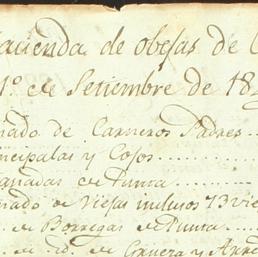 acienda de obejas de C
1º de Setiembre de 18
nado de Carneros Padres
ncipalas y Cojos
anadas de Punta
nado de Viejas inclusos 73 vie
de Borregas de Punta
de id. de Cruera y